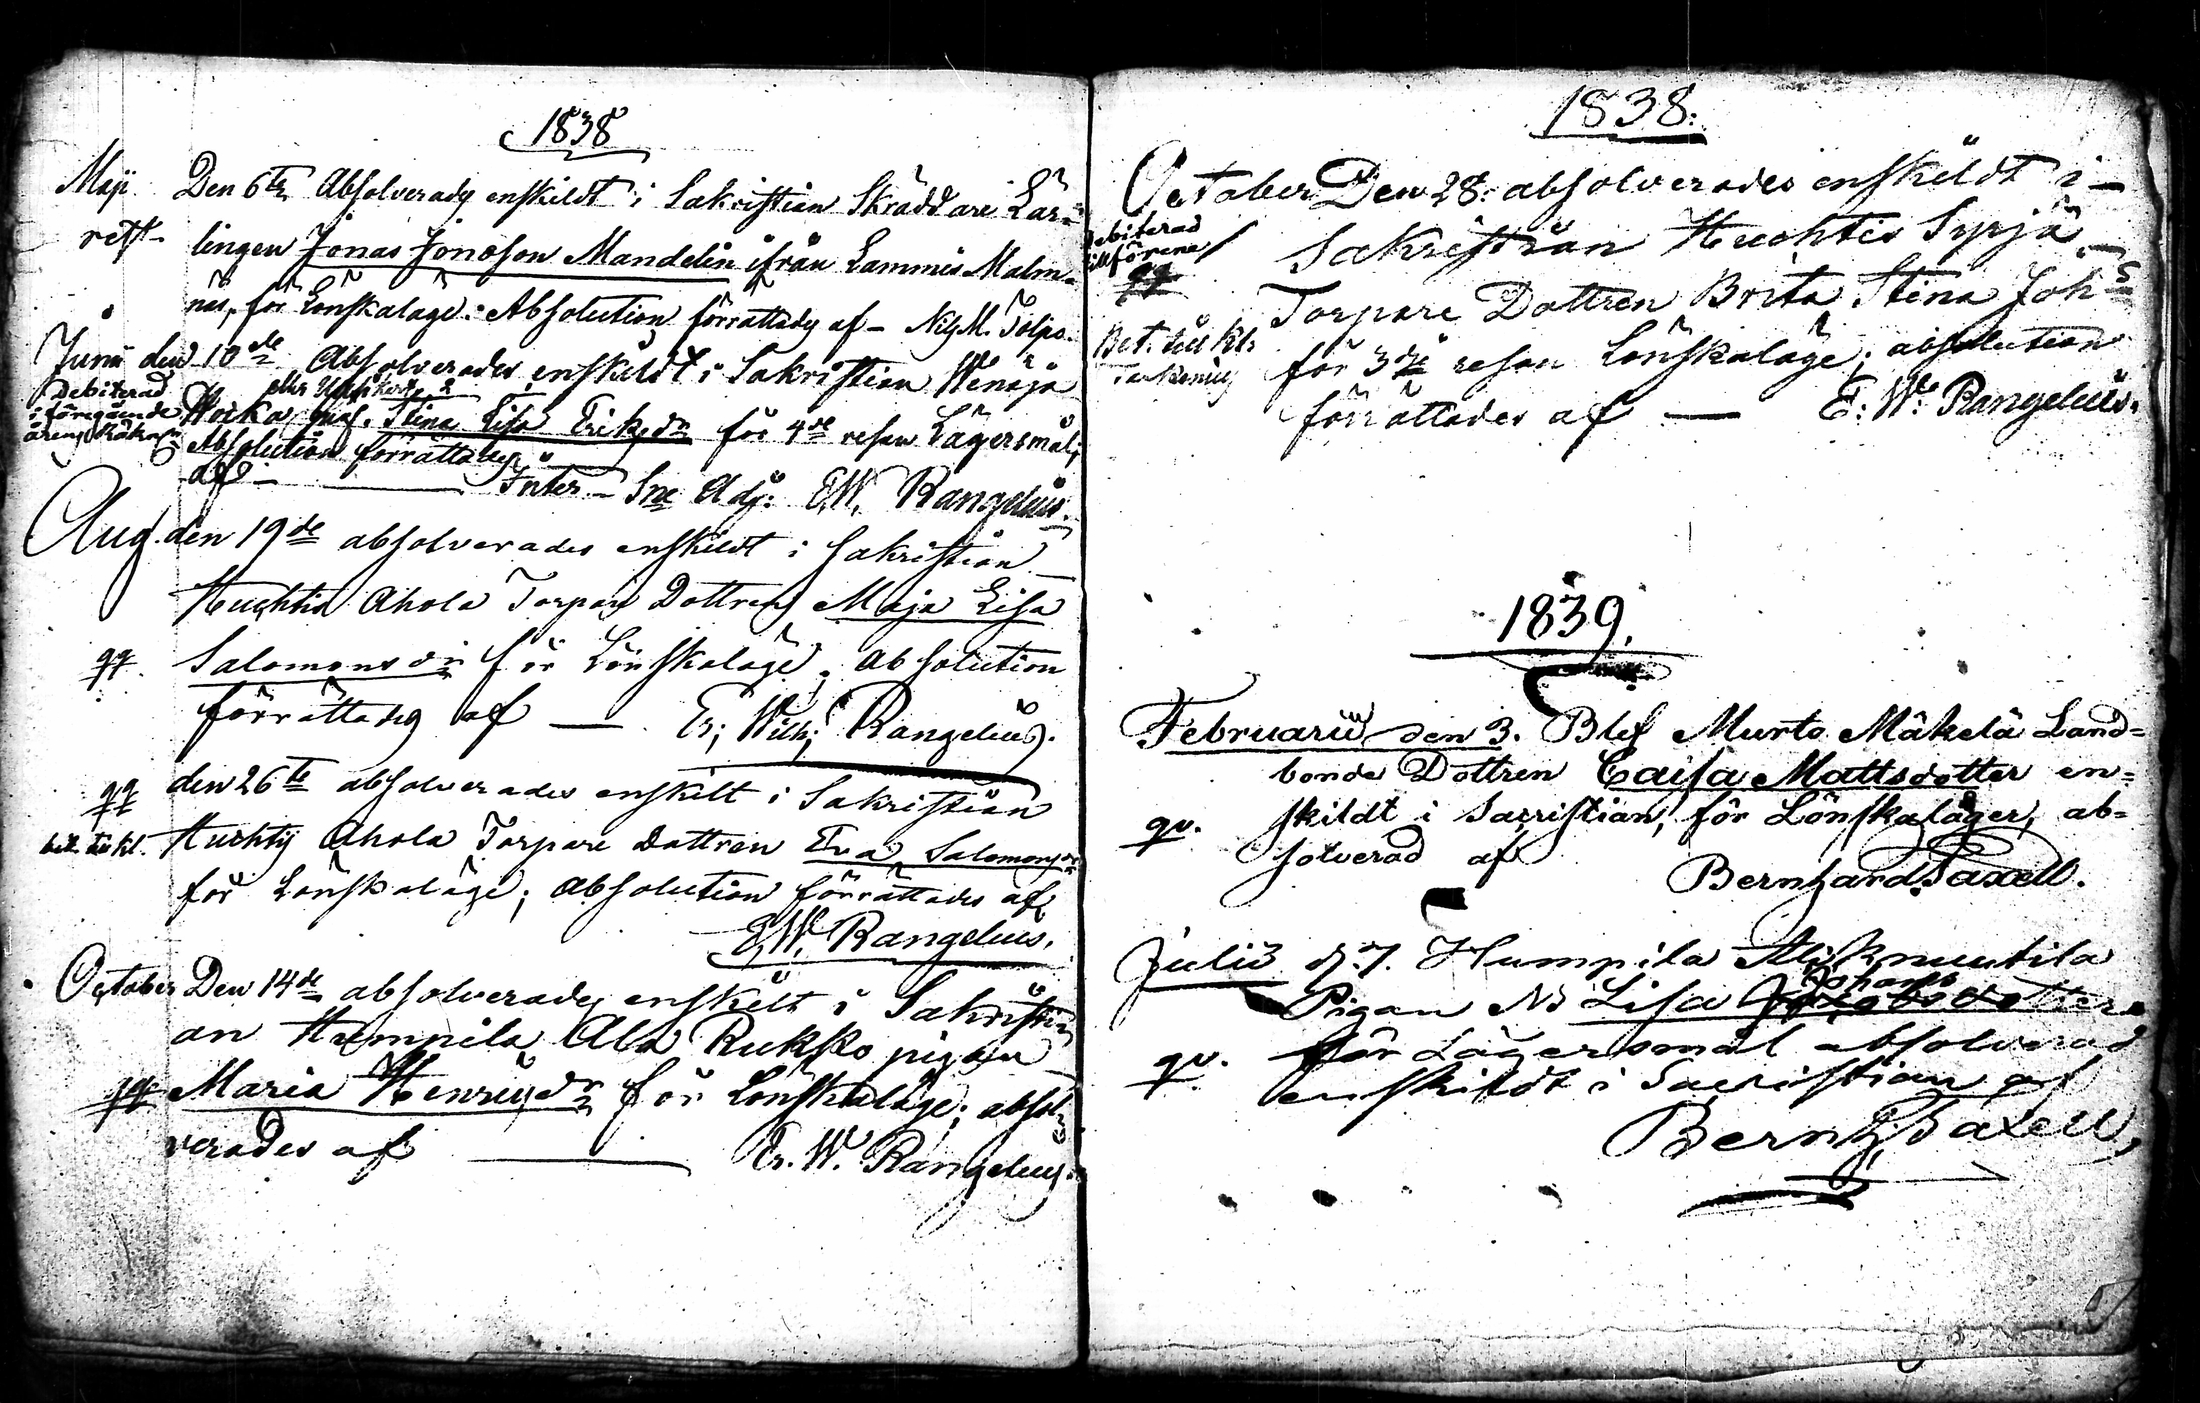 1838
Maji Den 6te Absolverades enskildt i Sakristian Skräddare Lär-
lingen Jonas Jonasson Mandelin ifrån Lammis Malm-
näs, för Lönskaläge: Absolution förrättades af - Nils M. Tolpo.
Junii den 10de Absolverades enskildt i Sakristian Wenäjä
Debiterad
i föregående
Stina Lisa Eriksdr för 4de resan Lägersmål;
Absolution förrättades
af - Inter - Sac. Adj: E.W. Rangelius.
Aug. den 19de absolverades enskildt i Sakristian
Huchtis Ahola Torpare Dottren Maja Lisa
qq. Salomonsdr för Lönskaläge; Absolution
förrättades af — Er; Wilh; Rangelius.
qq den 26te absolverades enskilt i Sakristian
Huchtis Ahola Torpare dottren Eva Salomonsdr
för Lönskaläge; absolution förrättades af
E.W. Rangelius.
October Den 14de absolverades enskilt i Sakristi-
an Humpila Ala Rukko pigan
qq Maria Henriksdr för Lönskaläge; absol-
verades af — Er. W. Rangelius.
1838:
October Den 28: absolverades enskildt i —
Debiterad
tillförene
Sakristian Huchtis Syrjä —
qq
Torpare Dottren Brita Stina Johs
Bet. till kl.
för 3dje resan Lönskaläge; absolution
förrättades af — E: W: Rangelius.
1839.
Februarii den 3. Blef Murto Mäkelä Land-
bonde Dottren Caisa Mattsdotter en-
qv. skildt i Sacristian, för Lönskaläger, ab-
solverad af
Bernhard Saxell.
Julii d. 7. Humpila Aliknuutila
Johans
Pigan Lisa Jacobsdotter
qv. för Lägersmål absolverad
enskildt i Sacristian af
Bernh. Saxell,